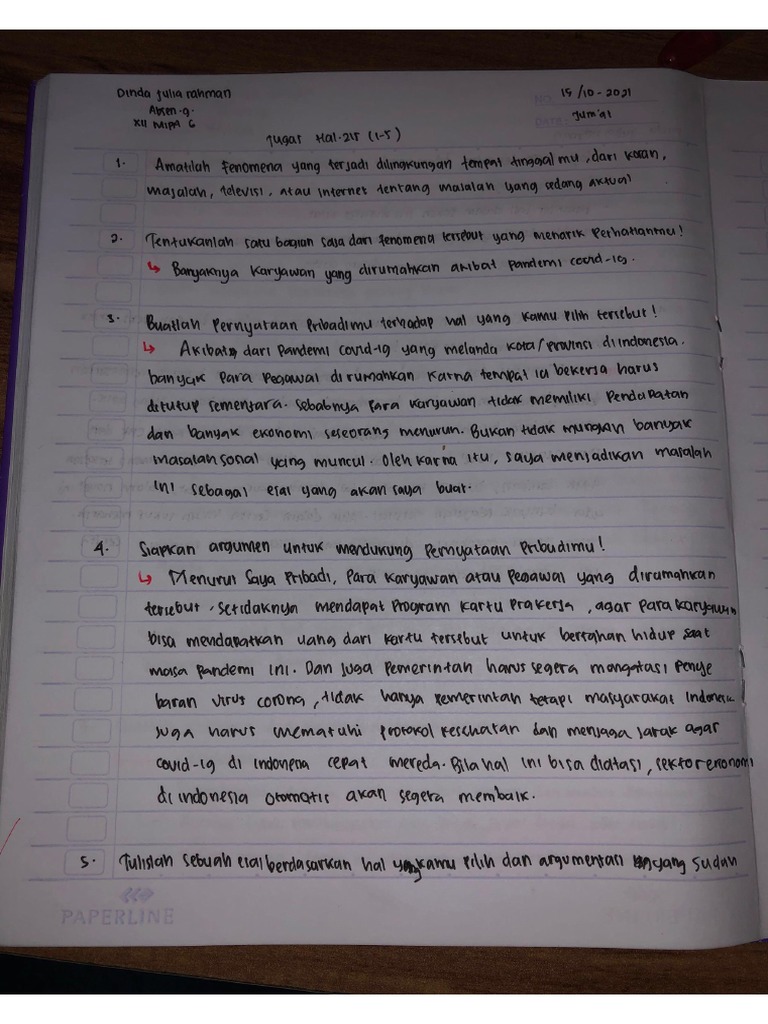 Dinda Julia rahman
Absen.9.
XII MIPA 6
NO.
15/10-2021
DATE
Jum'at
Tugas Hal.215 (1-5)
1. Amatilah fenomena yang terjadi dilingkungan tempat tinggal mu, dari koran,
majalah, televisi, atau internet tentang masalah yang sedang aktual
2. Tentukanlah satu bagian saja dari fenomena tersebut yang menarik Perhatianmu!
↳ Banyaknya karyawan yang dirumahkan akibat pandemi covid-19.
3. Buatlah Pernyataan Pribadimu terhadap hal yang kamu Pilih tersebut!
↳ Akibat dari Pandemi covid-19 yang melanda kota/Provinsi di indonesia.
banyak Para Pegawai dirumahkan karna tempat ia bekerja harus
ditutup sementara. Sebabnya Para karyawan tidak memiliki Pendapatan
dan banyak ekonomi seseorang menurun. Bukan tidak mungkin banyak
masalah sosial yang muncul. Oleh karna itu, saya menjadikan masalah
ini sebagai esai yang akan saya buat.
4. Siapkan argumen untuk mendukung Pernyataan Pribudimu!
↳ Menurut Saya Pribadi, Para karyawan atau Pegawai yang dirumahkan
tersebut, setidaknya mendapat Program kartu Prakerja, agar Para karyawan
bisa mendapatkan uang dari kartu tersebut untuk bertahan hidup saat
masa Pandemi ini. Dan Juga Pemerintah harus segera mengatasi Penye
baran virus corona, tidak hanya Pemerintah tetapi masyarakat Indonesia
Juga harus mematuhi Protokol kesehatan dan menjaga jarak agar
covid-19 di indonesia cepat mereda. Bila hal ini bisa diatasi, sektor ekonomi
di indonesia otomatis akan segera membaik.
5. Tulislah sebuah esai berdasarkan hal yang kamu Pilih dan argumentasi yang sudah
PAPERLINE